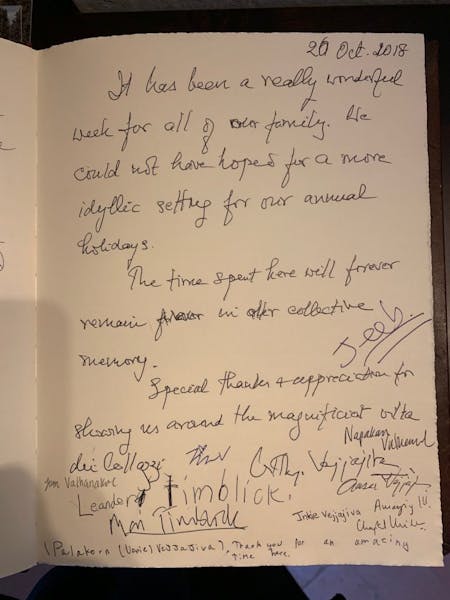 20 Oct. 2018
It has been a really wonderful
week for all of our family. We
could not have hoped for a more
idyllic setting for our annual
holidays.
The time spent here will forever
remain in our collective
memory.
Special thanks & appreciation for
showing us around the magnificent villa
dei Collazzi
Napakan
Vejjajiva
Leander Timblick.
Mari Timblick
Vejjajiva
(Palakorn (Varie) Vejjajiva), Thank you for an amazing
time here.